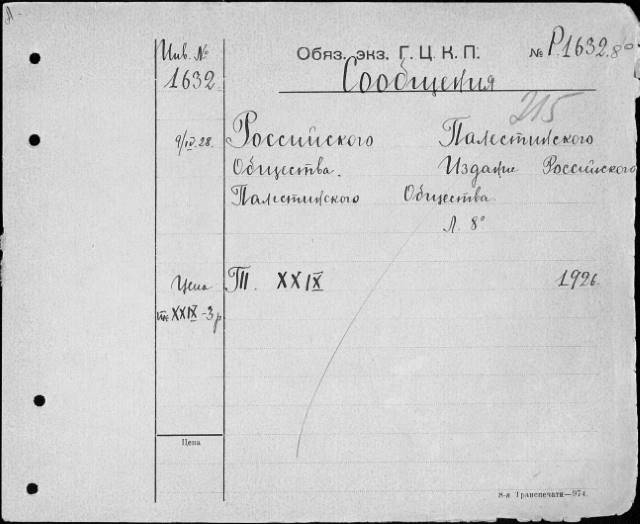 Инв. №
1632
Обяз. экз. Г. Ц. К. П. № Р.1632. 8°
Сообщения
215
9/IV 28. Российского Палестинского
Общества. Издание Российского
Палестинского Общества
Л. 8°
Цена Т. XXIX 1926.
XXIX - 3 р
Цена
8-я Транспечати—974.